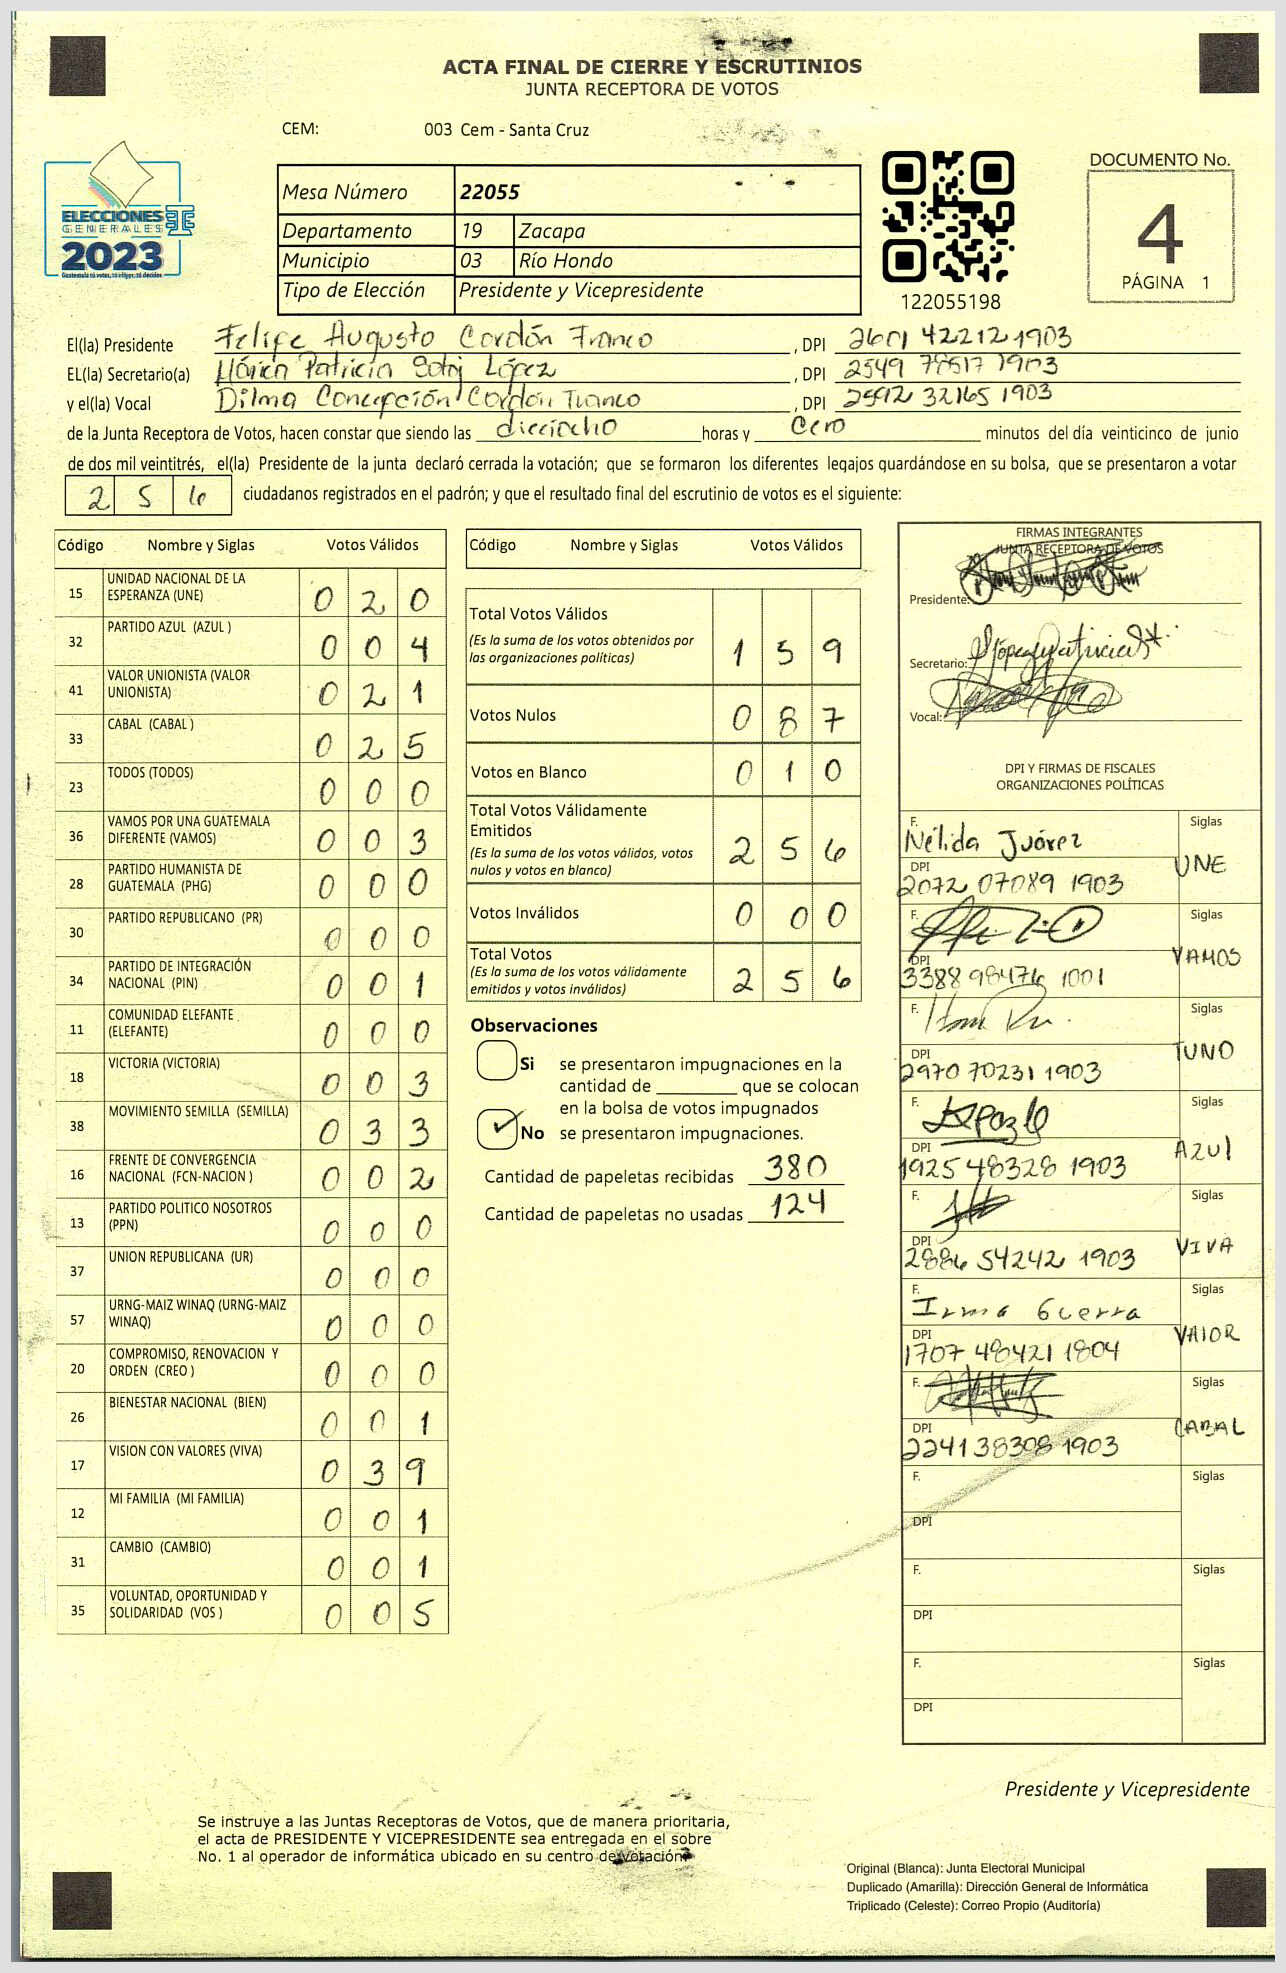 ACTA FINAL DE CIERRE Y ESCRUTINIOS
JUNTA RECEPTORA DE VOTOS
CEM: 003 Cem - Santa Cruz
ELECCIONES
GENERALES
2023
Mesa Número 22055
Departamento 19 Zacapa
Municipio 03 Río Hondo
Tipo de Elección Presidente y Vicepresidente
122055198
DOCUMENTO No.
4
PÁGINA 1
El(la) Presidente Felipe Augusto Cordón Franco, DPI 2601 42212 1903
EL(la) Secretario(a) Patricia López, DPI 2549 78517 1903
y el(la) Vocal Dilma Concepción Cordón Franco, DPI 2592 32165 1903
de la Junta Receptora de Votos, hacen constar que siendo las dieciocho horas y cero minutos del día veinticinco de junio
de dos mil veintitrés, el(la) Presidente de la junta declaró cerrada la votación; que se formaron los diferentes legajos guardándose en su bolsa, que se presentaron a votar
2 5 6 ciudadanos registrados en el padrón; y que el resultado final del escrutinio de votos es el siguiente:
Código Nombre y Siglas Votos Válidos
15 UNIDAD NACIONAL DE LA ESPERANZA (UNE) 0 2 0
32 PARTIDO AZUL (AZUL ) 0 0 4
41 VALOR UNIONISTA (VALOR UNIONISTA) 0 2 1
33 CABAL (CABAL ) 0 2 5
23 TODOS (TODOS) 0 0 0
36 VAMOS POR UNA GUATEMALA DIFERENTE (VAMOS) 0 0 3
28 PARTIDO HUMANISTA DE GUATEMALA (PHG) 0 0 0
30 PARTIDO REPUBLICANO (PR) 0 0 0
34 PARTIDO DE INTEGRACIÓN NACIONAL (PIN) 0 0 1
11 COMUNIDAD ELEFANTE (ELEFANTE) 0 0 0
18 VICTORIA (VICTORIA) 0 0 3
38 MOVIMIENTO SEMILLA (SEMILLA) 0 3 3
16 FRENTE DE CONVERGENCIA NACIONAL (FCN-NACION ) 0 0 2
13 PARTIDO POLITICO NOSOTROS (PPN) 0 0 0
37 UNION REPUBLICANA (UR) 0 0 0
57 URNG-MAIZ WINAQ (URNG-MAIZ WINAQ) 0 0 0
20 COMPROMISO, RENOVACION Y ORDEN (CREO ) 0 0 0
26 BIENESTAR NACIONAL (BIEN) 0 0 1
17 VISION CON VALORES (VIVA) 0 3 9
12 MI FAMILIA (MI FAMILIA) 0 0 1
31 CAMBIO (CAMBIO) 0 0 1
35 VOLUNTAD, OPORTUNIDAD Y SOLIDARIDAD (VOS ) 0 0 5
Código Nombre y Siglas Votos Válidos
Total Votos Válidos
(Es la suma de los votos obtenidos por
las organizaciones políticas) 1 5 9
Votos Nulos 0 8 7
Votos en Blanco 0 1 0
Total Votos Válidamente
Emitidos
(Es la suma de los votos válidos, votos
nulos y votos en blanco) 2 5 6
Votos Inválidos 0 0 0
Total Votos
(Es la suma de los votos válidamente
emitidos y votos inválidos) 2 5 6
Observaciones
Si se presentaron impugnaciones en la
cantidad de ________ que se colocan
en la bolsa de votos impugnados
No se presentaron impugnaciones.
Cantidad de papeletas recibidas 380
Cantidad de papeletas no usadas 124
FIRMAS INTEGRANTES
JUNTA RECEPTORA DE VOTOS
Presidente:
Secretario:
Vocal:
DPI Y FIRMAS DE FISCALES
ORGANIZACIONES POLÍTICAS
F. Nélida Juárez Siglas UNE
DPI 2072 07089 1903
F. Siglas VAMOS
DPI 3388 98476 1001
F. Siglas TUNO
DPI 2970 70231 1903
F. Siglas AZUl
DPI 1925 48328 1903
F. Siglas VIVA
DPI 2886 54242 1903
F. Irma Guerra Siglas VAlOR
DPI 1707 48421 1804
F. Siglas CABAL
DPI 2241 38308 1903
F. Siglas
DPI
F. Siglas
DPI
F. Siglas
DPI
Presidente y Vicepresidente
Se instruye a las Juntas Receptoras de Votos, que de manera prioritaria,
el acta de PRESIDENTE Y VICEPRESIDENTE sea entregada en el sobre
No. 1 al operador de informática ubicado en su centro de votación.
Original (Blanca): Junta Electoral Municipal
Duplicado (Amarilla): Dirección General de Informática
Triplicado (Celeste): Correo Propio (Auditoría)